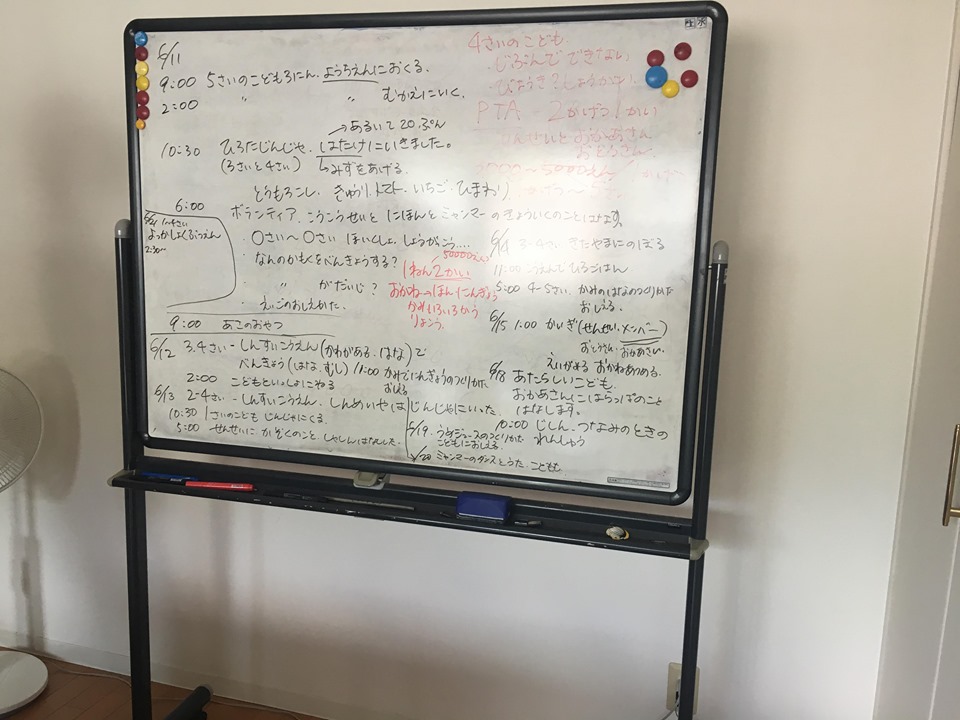 6/11
9:00 5さいのこども3にん、ようちえんにおくる。
2:00 〃 むかえにいく。
→あるいて20ぷん
10:30 ひろたじんじゃ、はたけにいきました。
(3さいと4さい) ↳みずをあげる。
とうもろこし、きゅうり、トマト、いちご、ひまわり
6:00
ボランティア、こうこうせいと にほんとミャンマーのきょういくのことはなす。
・〇さい〜〇さい ほいくしょ、しょうがっこう....
・なんのかもくをべんきょうする?
・ 〃 がだいじ?
・えいごのおしえかた、
6/21 1〜4さい
2:30〜
9:00 あこのおやつ
6/12 3.4さい-しんすいこうえん(かわがある、はな)で
べんきょう(はな、むし) 11:00 かみでにんぎょうのつくりかた
おしえる
2:00 こどもといっしょにやる
6/13 2-4さい-しんすいこうえん、しんめいやはじんじゃにいった。
10:30 1さいのこども じんじゃにくる
5:00 せんせいに かぞくのこと、しゃしんはなした。
4さいのこども、
・じぶんで できない
・びょうき?しょうがい
PTA - 2かげつ1かい
せんせいと おかあさん
おとうさん
50000えん
1ねん2かい
おかね→ほん にんぎょう
かみ いろいろかう
りょこう。
6/14 3-4さい きたやまにのぼる
11:00 こうえんでひるごはん
5:00 4-5さい、かみのはなのつくりかた
おしえる
6/15 1:00 かいぎ(せんせい、メンバー)
おとうさん、おかあさん、
えいがみる おかねあつめる。
6/18 あたらしいこども、
おかあさんにはらっぱのこと
はなします。
10:00 じしん、つなみのときの
れんしゅう
6/19、うめジュースのつくりかた
こどもにおしえる
6/20 ミャンマーのダンスとうた、こども